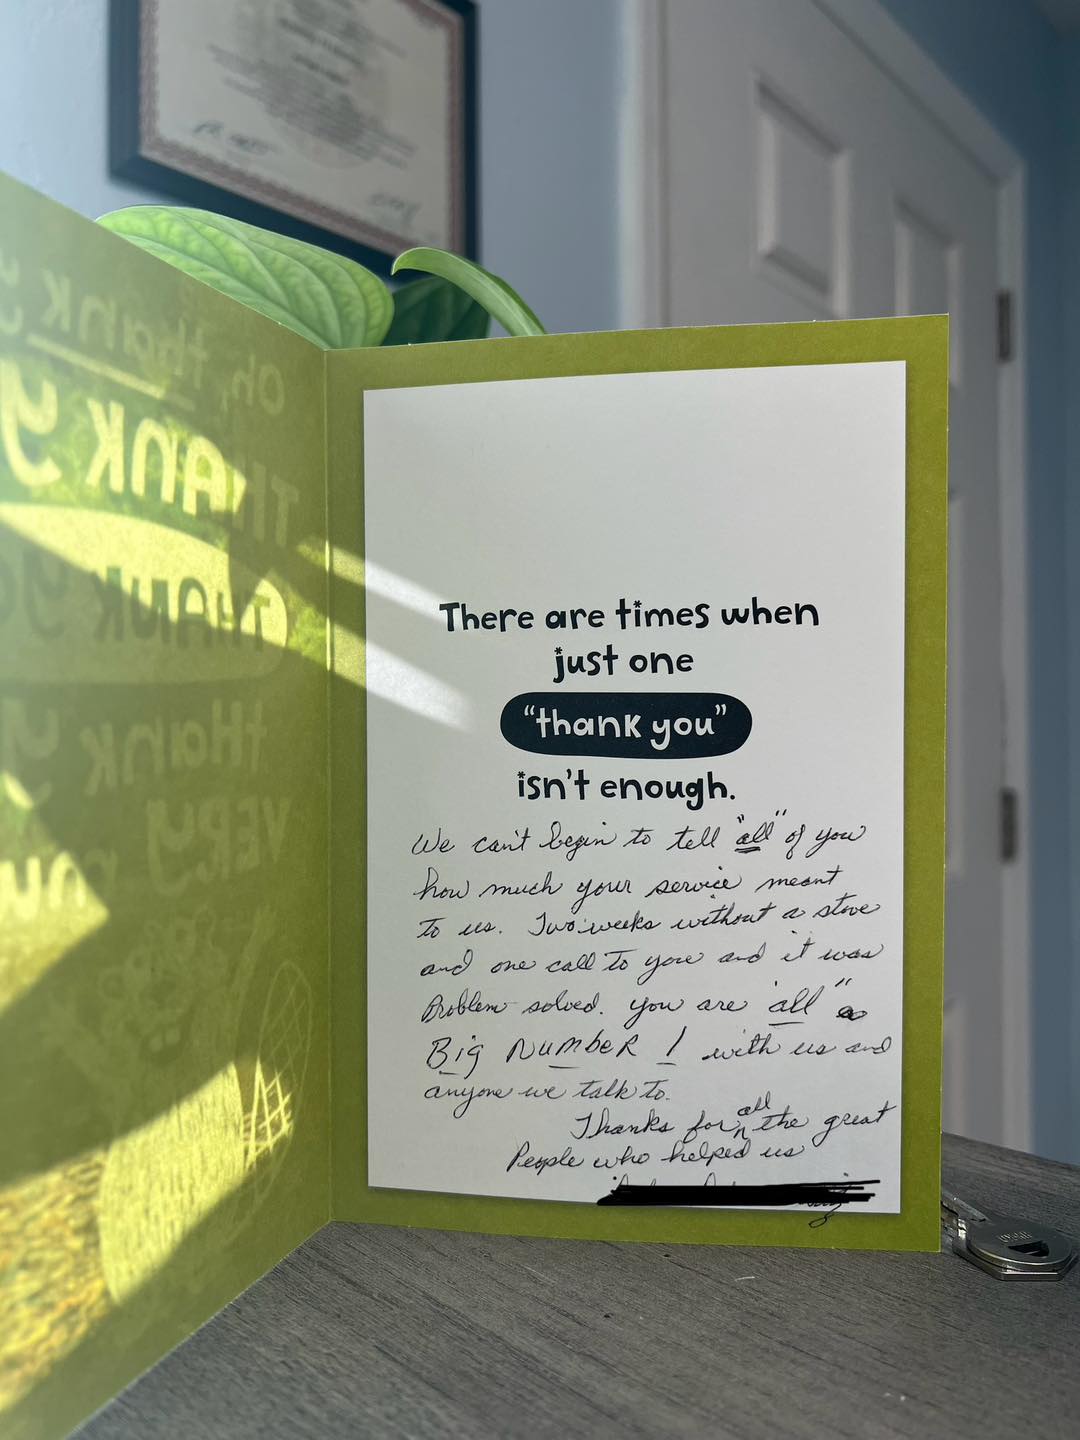 There are times when
just one
“thank you”
isn't enough.
We can't begin to tell "all" of you
how much your service meant
to us. Two weeks without a stove
and one call to you and it was
Problem solved. you are "all" a
Big NumbeR 1 with us and
anyone we talk to.
Thanks for all the great
People who helped us
oh, thank y
THANK y
THANK yo
thank y
VERY